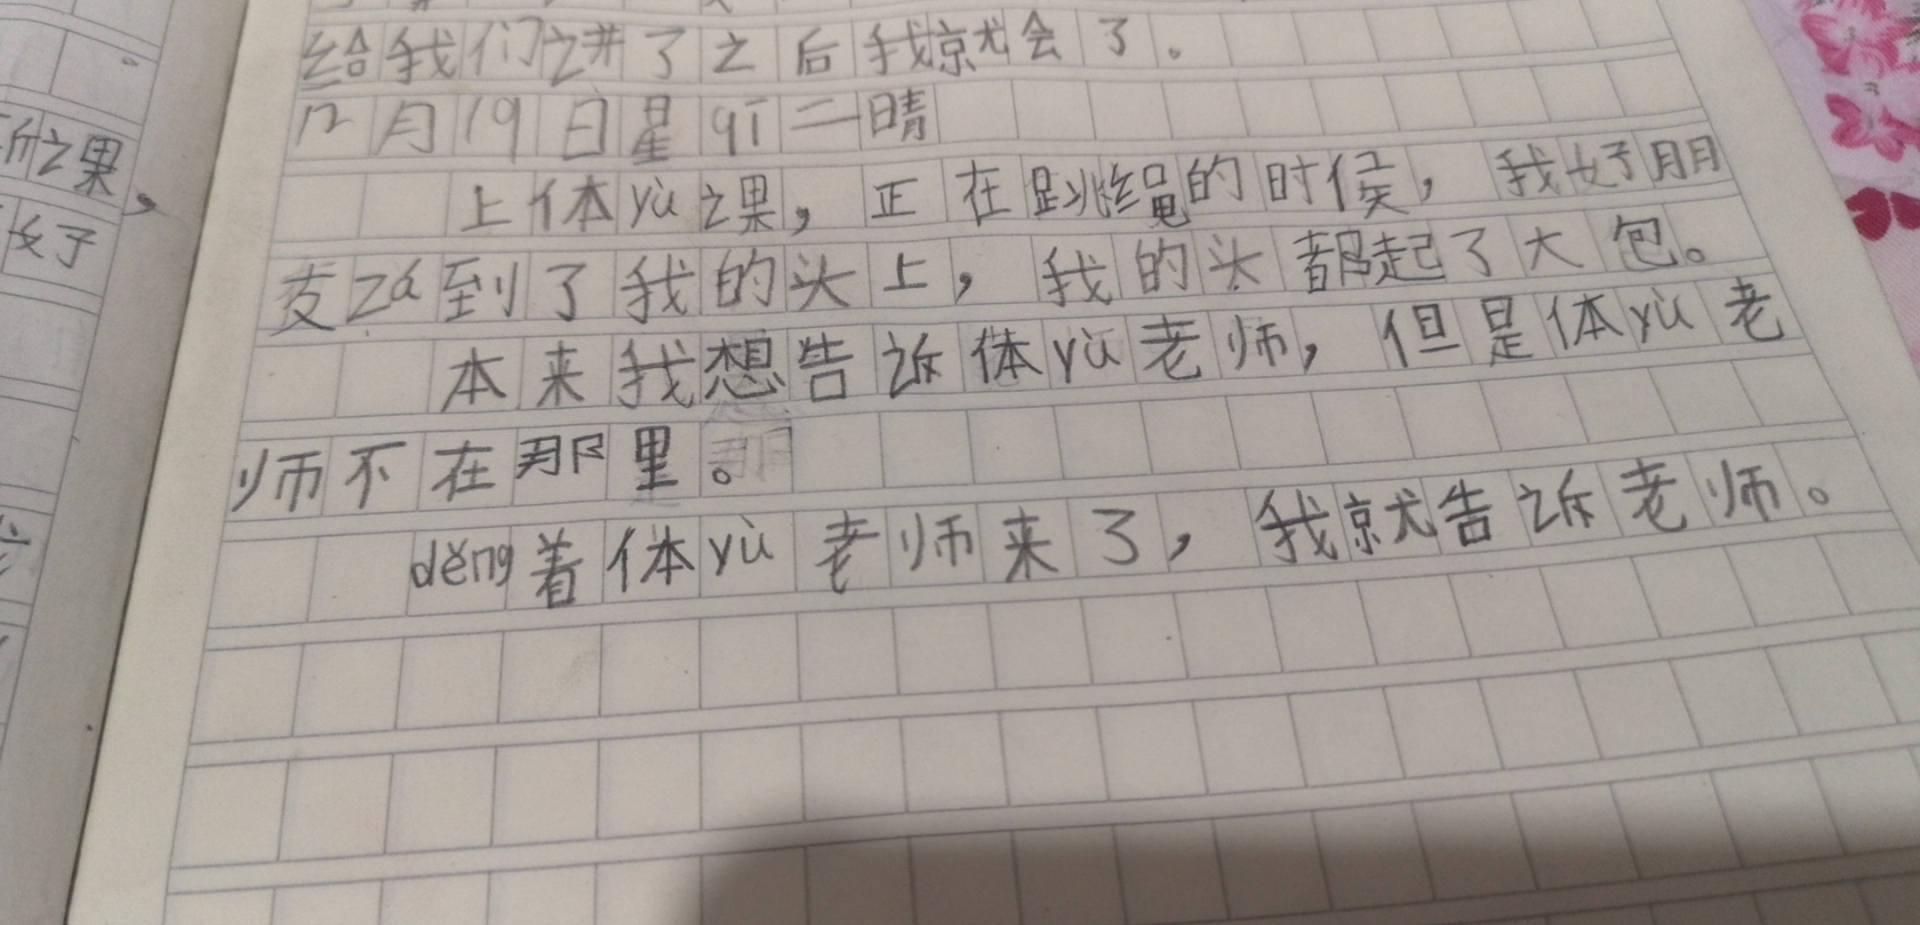 给我们讲了之后我就会了。
12月19日星期二晴
上体yù课，正在跳绳的时候，我好朋
友zá到了我的头上，我的头都起了大包。
本来我想告诉体yù老师，但是体yù老
师不在那里。
děng着体yù老师来了，我就告诉老师。
课，
好